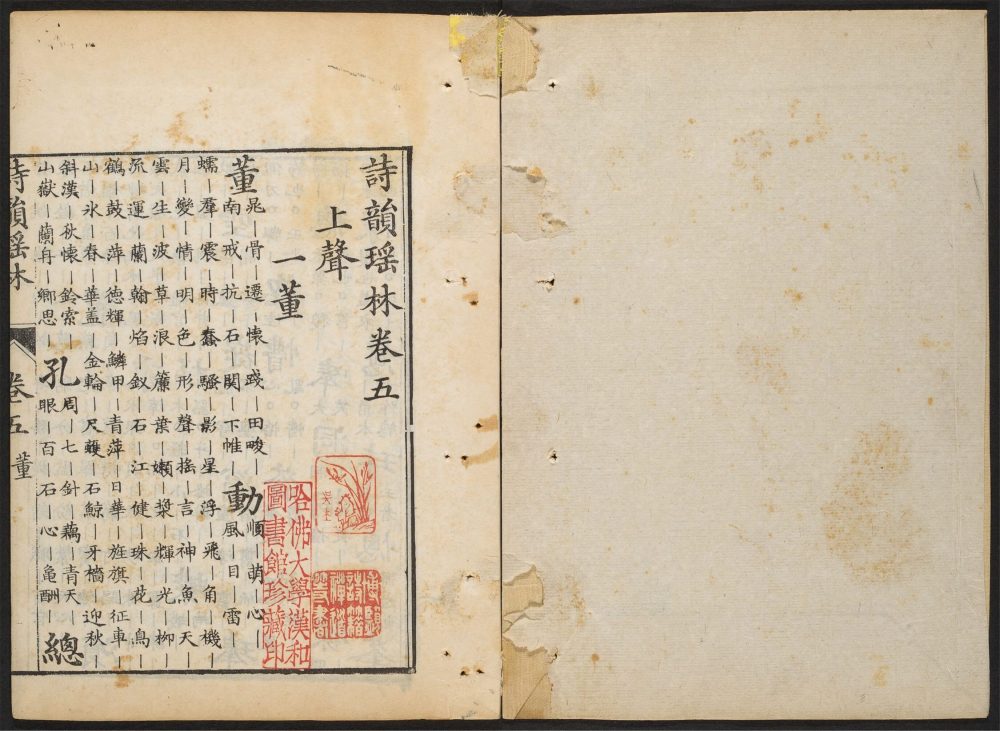 詩韻瑶林卷五
上聲
一董
董晁｜骨｜遷｜懷｜踐｜田畯｜
南｜戒｜抗｜石｜闕｜下帷｜
動順｜萌｜心｜
風｜目｜雷｜
蠕｜羣｜震｜時｜蠢｜騷｜影｜星｜浮｜飛｜角｜機｜
月｜變｜情｜明｜色｜形｜聲｜搖｜言｜神｜魚｜天｜
雲｜生｜波｜草｜浪｜簾｜葉｜嬾｜槳｜輝｜光｜柳｜
流｜運｜蘭｜翰｜焰｜釵｜石｜江｜健｜珠｜花｜鳥｜
鶴｜鼓｜萍｜德輝｜鱗甲｜青萍｜日華｜旌旗｜征車｜
山｜氷｜春｜華盖｜金輪｜尺蠖｜石鯨｜牙檣｜迎秋｜
斜漢｜秋懷｜鈴索｜
山嶽｜蘭舟｜鄉思｜
孔周｜七｜針｜藕｜青天｜
眼｜百｜石｜心｜龜酬｜
總
詩韻瑶林 卷五 董
哈佛大學漢和
圖書館珍藏印